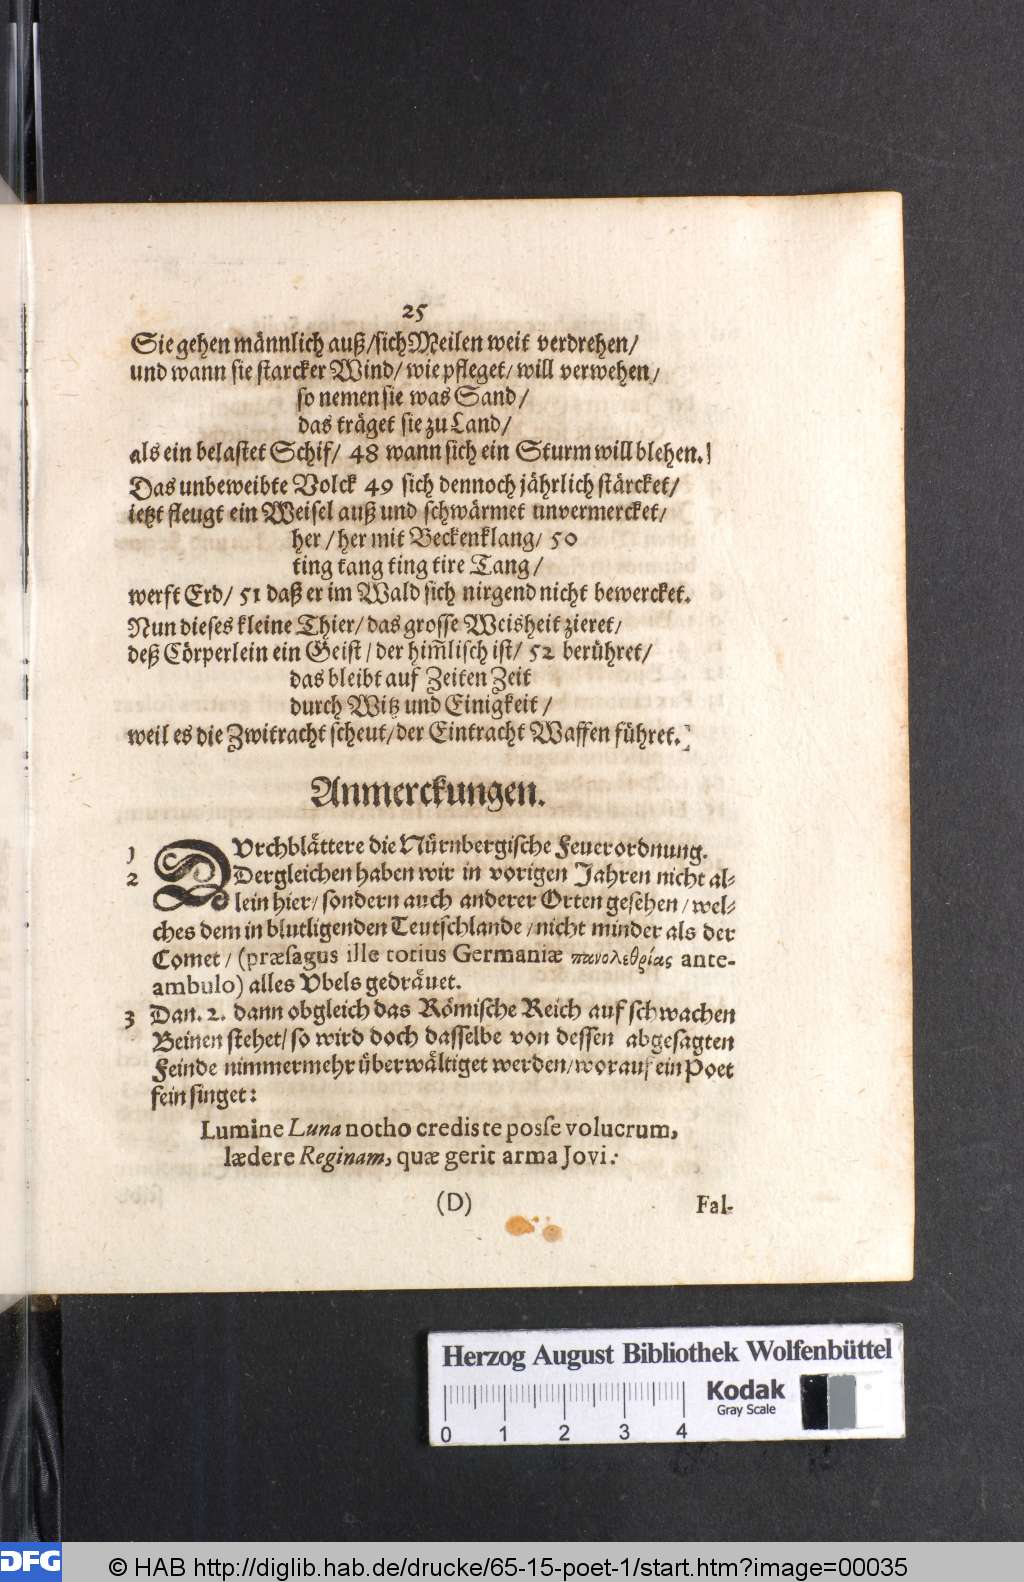 25
Sie gehen männlich auß/sich Meilen weit verdrehen/
und wann sie starcker Wind/ wie pfleget/ will verwehen/
so nemen sie was Sand/
das träget sie zu Land/
als ein belastet Schif/ 48 wann sich ein Sturm will blehen.
Das unbeweibte Volck 49 sich dennoch jährlich stärcket/
ietzt fleugt ein Weisel auß und schwärmet unvermercket/
her/her mit Beckenklang/ 50
ting tang ting tire Tang/
werft Erd/ 51 daß er im Wald sich nirgend nicht bewercket.
Nun dieses kleine Thier/das grosse Weisheit zieret/
deß Cörperlein ein Geist/ der him̃lisch ist/ 52 berühret/
das bleibt auf Zeiten Zeit
durch Witz und Einigkeit/
weil es die Zwitracht scheut/der Eintracht Waffen führet.
Anmerckungen.
1 DUrchblättere die Nürnbergische Feuerordnung.
2 Dergleichen haben wir in vorigen Jahren nicht al-
lein hier/ sondern auch anderer Orten gesehen/wel-
ches dem in blutligenden Teutschlande/nicht minder als der
Comet/ (præsagus ille totius Germaniæ πανολεθρίας ante-
ambulo) alles Vbels gedräuet.
3 Dan. 2. dann obgleich das Römische Reich auf schwachen
Beinen stehet/ so wird doch dasselbe von dessen abgesagten
Feinde nimmermehr überwältiget werden/worauf ein Poet
fein singet:
Lumine Luna notho credis te posse volucrum,
lædere Reginam, quæ gerit arma Jovi:
(D) Fal-
Herzog August Bibliothek Wolfenbüttel
Kodak
Gray Scale
0 1 2 3 4
DFG © HAB http://diglib.hab.de/drucke/65-15-poet-1/start.htm?image=00035